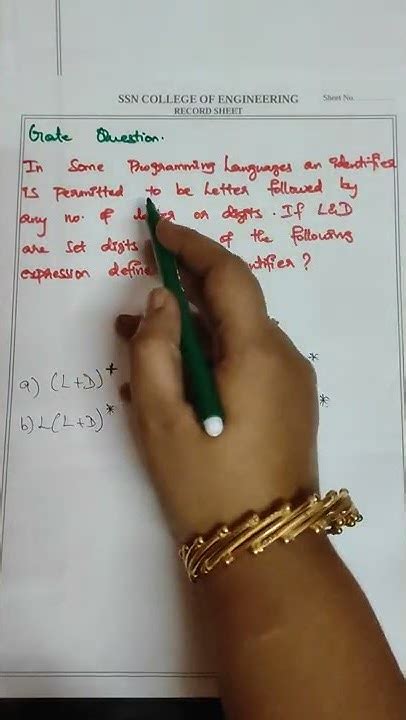 SSN COLLEGE OF ENGINEERING Sheet No.
RECORD SHEET
Gate Question.
In Some Programming Languages an identifier
is permitted to be Letter followed by
any no. of or digits. If L&D
are set digits of the following
expression ?
a) (L+D)+ *
b) L(L+D)* *